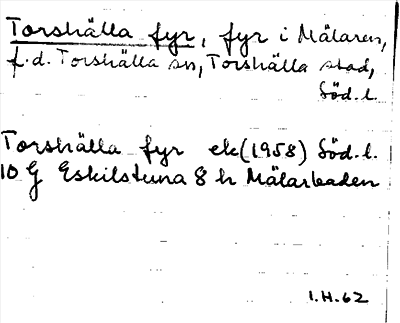 Torshälla fyr, fyr i Mälaren,
f.d. Torshälla sn, Torshälla stad,
Söd.l.
Torshälla fyr ek (1958) Söd.l.
10 G Eskilstuna 8 h Mälarbaden
I.H.62